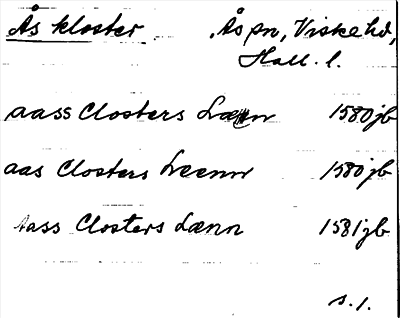 Ås kloster Ås sn, Viske hd,
Hall. l.
aass Closters Lænn 1580 jb
aas Closters Leenn 1580 jb
aass Closters Lænn 1581 jb
s. 1.